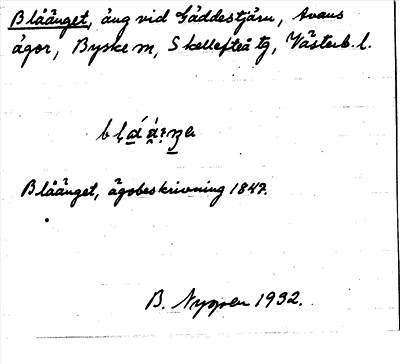 Blåänget, äng vid Gäddestjärn, Avans
ägor, Byske m, Skellefteå tg, Västerb. l.
Blåänget, ägobeskrivning 1847.
B. Nyman 1932.